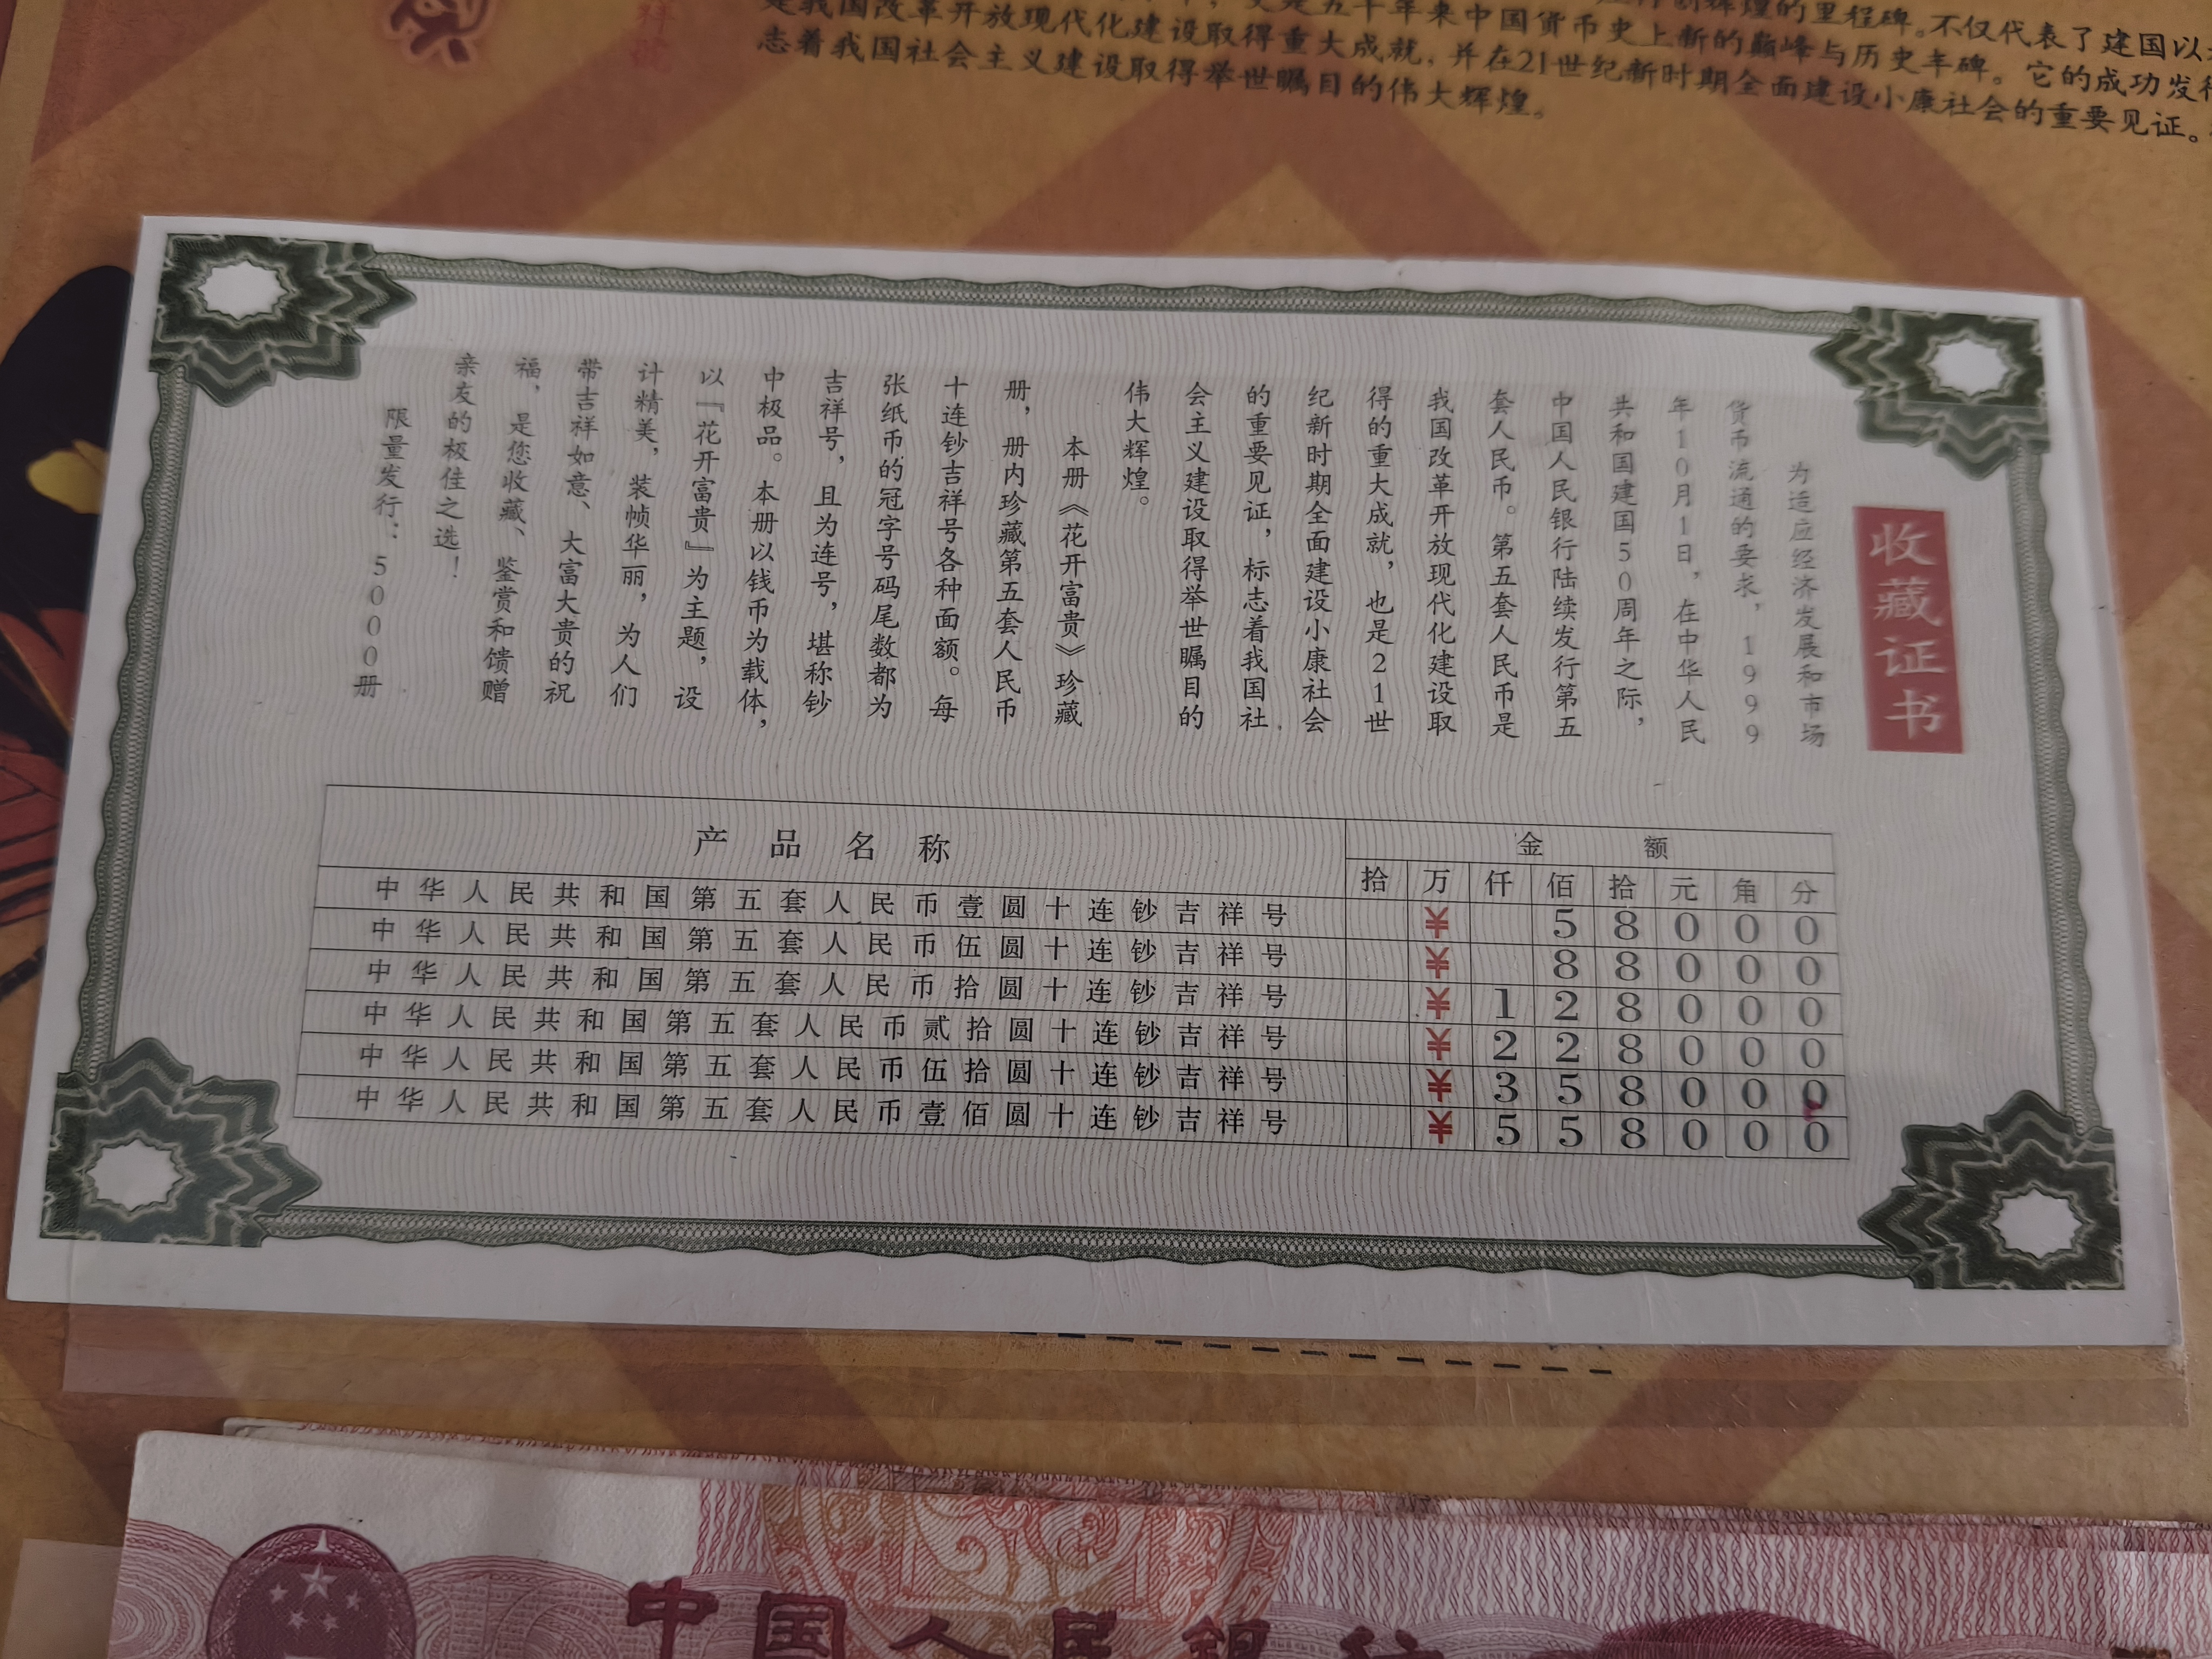 是我国改革开放现代化建设取得重大成就，并在21世纪新时期全面建设小康社会的重要见证。
志着我国社会主义建设取得举世瞩目的伟大辉煌。
收藏证书
为适应经济发展和市场
货币流通的要求，1999
年10月1日，在中华人民
共和国建国50周年之际，
中国人民银行陆续发行第五
套人民币。第五套人民币是
我国改革开放现代化建设取
得的重大成就，也是21世
纪新时期全面建设小康社会
的重要见证，标志着我国社
会主义建设取得举世瞩目的
伟大辉煌。
本册《花开富贵》珍藏
册，册内珍藏第五套人民币
十连钞吉祥号各种面额。每
张纸币的冠字号码尾数都为
吉祥号，且为连号，堪称钞
中极品。本册以钱币为载体，
以『花开富贵』为主题，设
计精美，装帧华丽，为人们
带吉祥如意、大富大贵的祝
福，是您收藏、鉴赏和馈赠
亲友的极佳之选！
限量发行：5000册
产品名称 金额
拾 万 仟 佰 拾 元 角 分
中华人民共和国第五套人民币壹圆十连钞吉祥号 ¥ 5 8 0 0 0
中华人民共和国第五套人民币伍圆十连钞吉祥号 ¥ 8 8 0 0 0
中华人民共和国第五套人民币拾圆十连钞吉祥号 ¥ 1 2 8 0 0 0
中华人民共和国第五套人民币贰拾圆十连钞吉祥号 ¥ 2 2 8 0 0 0
中华人民共和国第五套人民币伍拾圆十连钞吉祥号 ¥ 3 5 8 0 0 0
中华人民共和国第五套人民币壹佰圆十连钞吉祥号 ¥ 5 5 8 0 0 0
中国人民银行